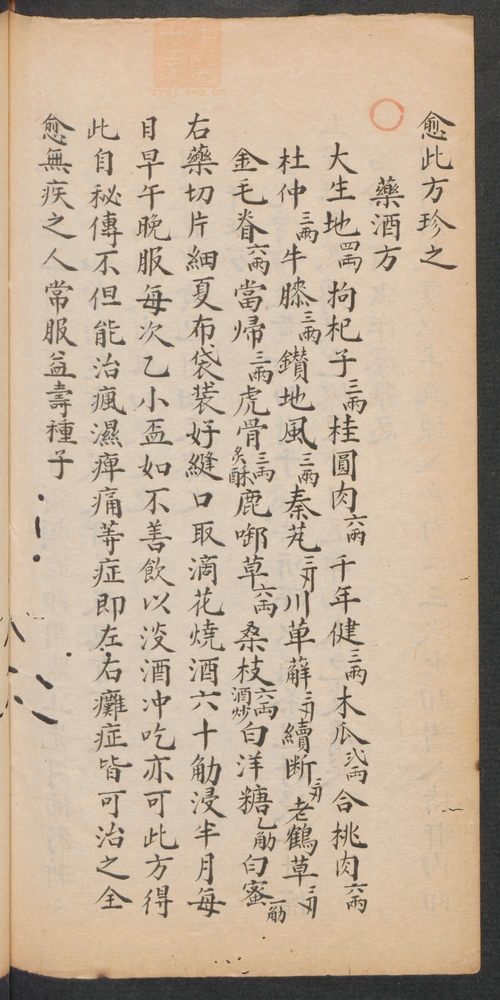 愈此方珍之
藥酒方
大生地四兩拘杞子三兩桂圓肉六兩千年健三兩木瓜弍兩合桃肉六兩
杜仲三兩牛膝三兩鑽地風三兩秦艽三刄川萆薢三刄續断三刄老鶴草三刄
金毛脊六兩當歸三兩虎骨三兩炙酥鹿啣草六兩桑枝六兩酒炒白洋糖乙觔白蜜一觔
右藥切片細夏布袋裝好縫口取滴花燒酒六十觔浸半月每
日早午晚服每次乙小盃如不善飲以淡酒冲吃亦可此方得
此自秘傳不但能治瘋濕痺痛等症即左右癱症皆可治之全
愈無疾之人常服益壽種子